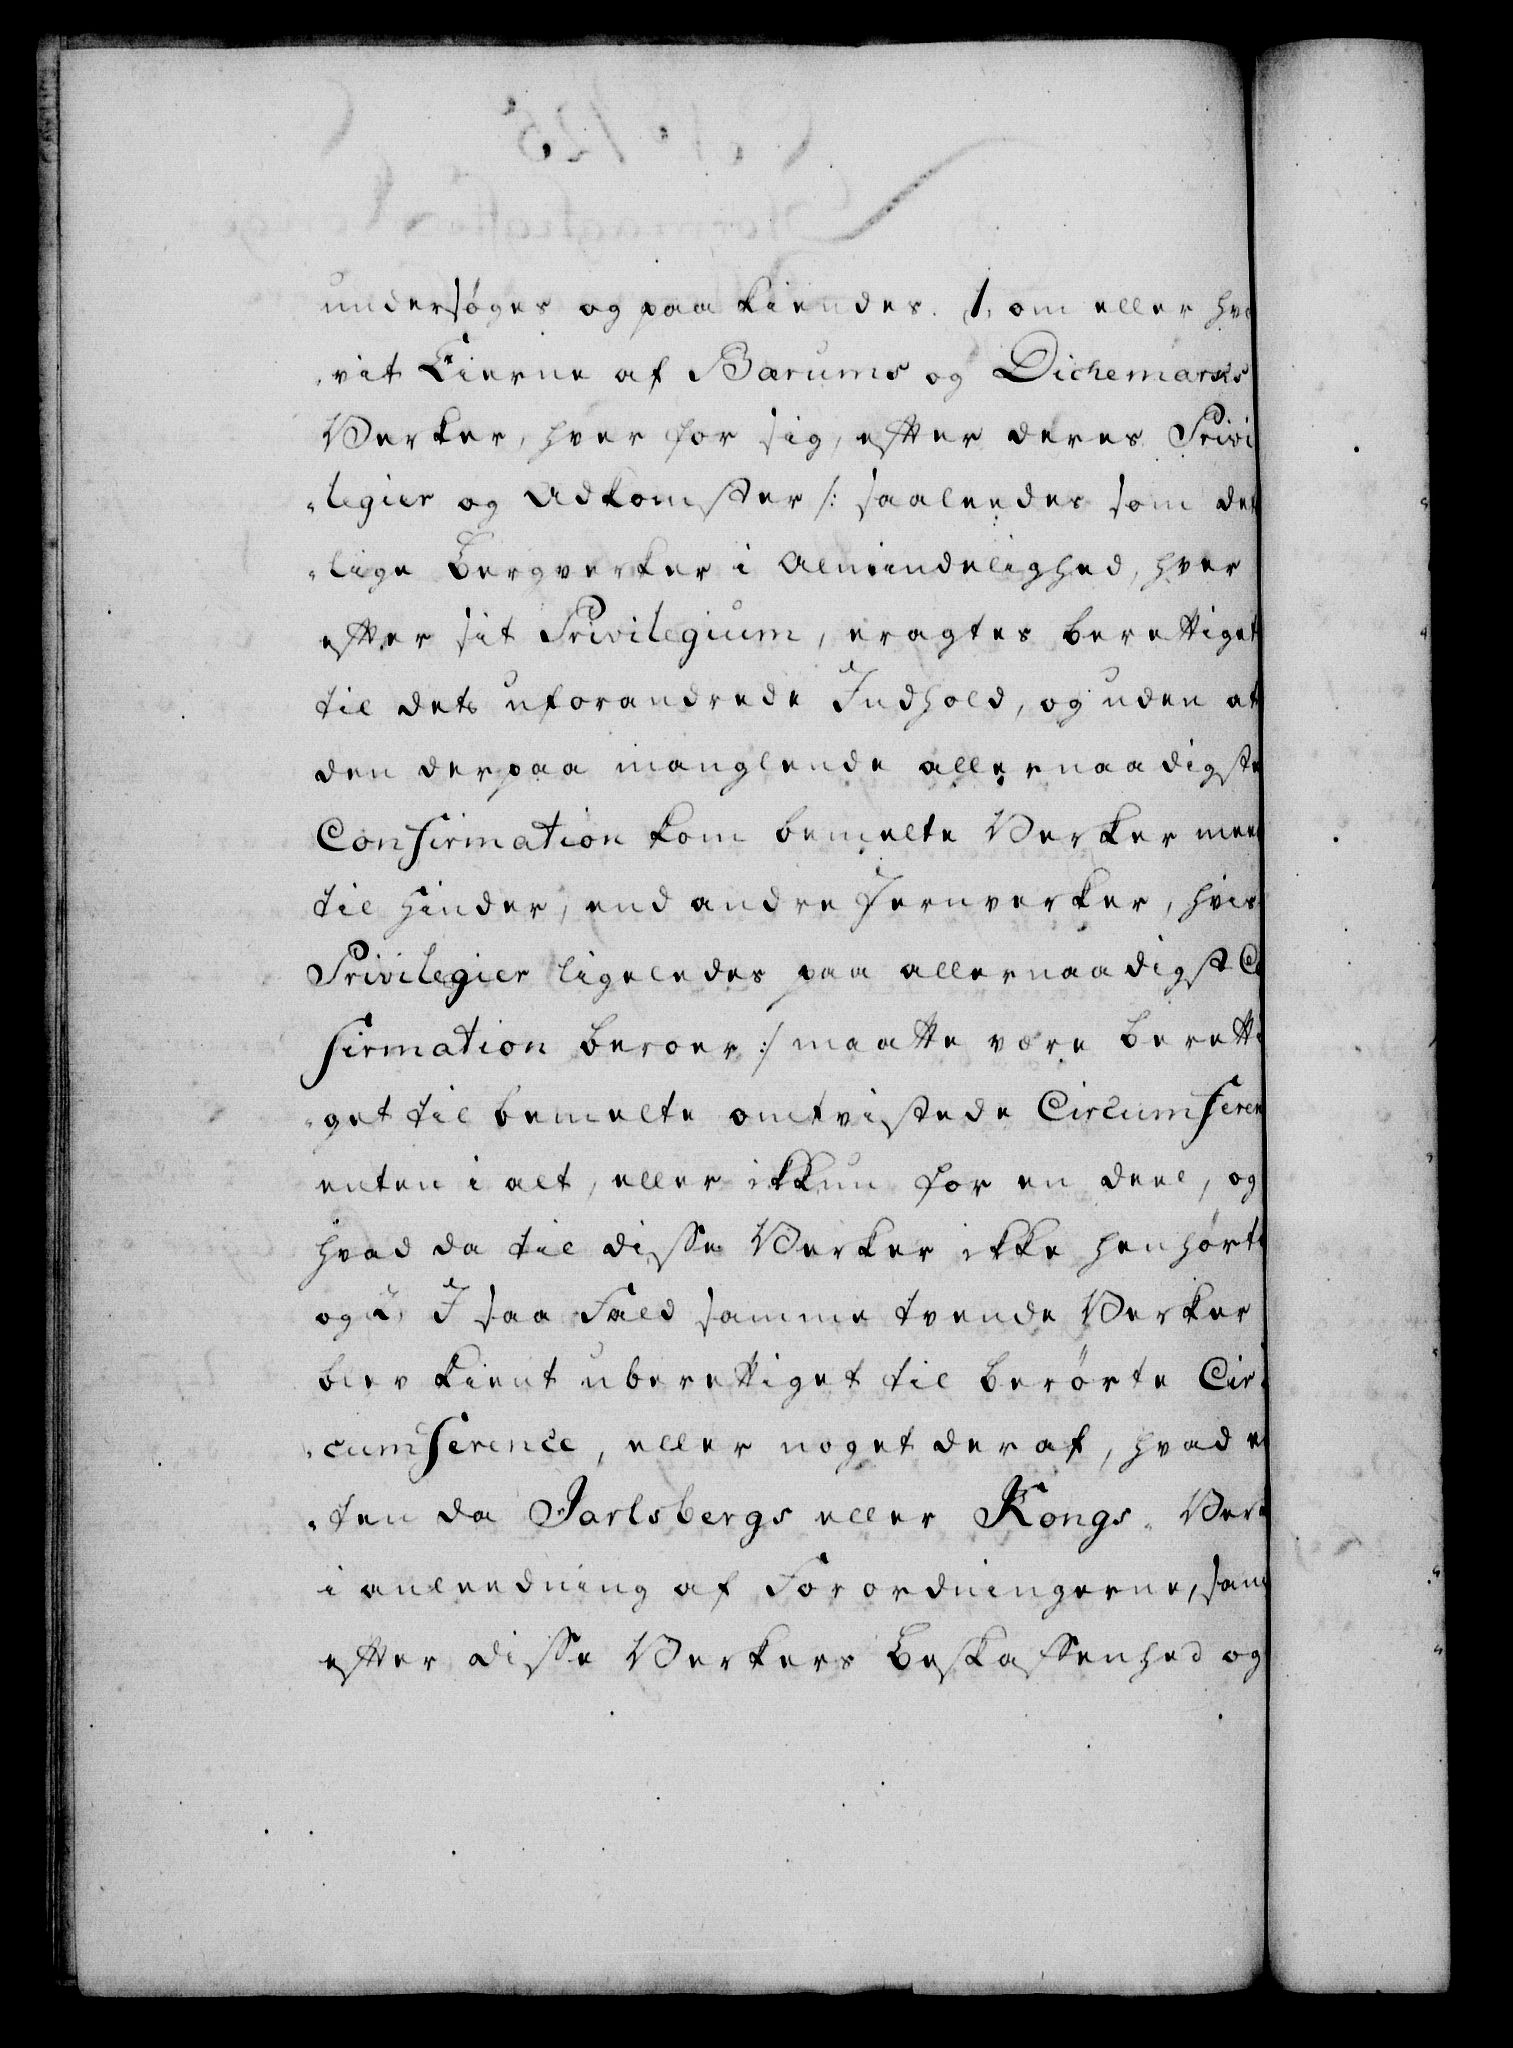 undersøges og paa kiendes. 1, om eller hvor
„vit Eierne af Bærums og Dichemarks
Verker, hver for sig, efter deres Privi
„legier og Adkomster /: saaleedes som des
„lige Bergverker i Almindelighed, hver
efter sit Privilegium, eragtes berettiget
til dets uforandrede Indhold, og uden at
den derpaa manglende allernaadigste
Confirmation kom bemelte Verker meer
til Hinder, end andre Jernverker, hvis
Privilegier ligeledes paa allernaadigst Co
firmation beroer :/ maatte være beretti
„get til bemelte omtvistede Circumferen
enten i alt, eller ikkun for en deel, og
hvad da til disse Verker ikke henhørte
og 2, I saa Fald samme tvende Verker
blev kient uberettiget til berørte Cir
„cumference, eller noget deraf, hvad en
„ten da Jarlsbergs eller Kongs„ Verk
i anleedning af Forordningerne, sam
efter disse Verkers Beskaffenhed og